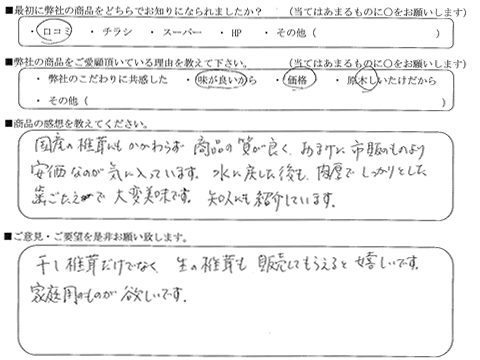 ■最初に弊社の商品をどちらでお知りになられましたか？ （当てはあまるものに○をお願いします）
・口コミ ・チラシ ・スーパー ・HP ・その他（ ）
■弊社の商品をご愛顧頂いている理由を教えて下さい。 （当てはあまるものに○をお願いします）
・弊社のこだわりに共感した ・味が良いから ・価格 ・原木しいたけだから
・その他（ ）
■商品の感想を教えてください。
国産の椎茸にもかかわらず 商品の質が良く、おまけに市販のものより
安価なのが気に入っています。水に戻した後も、肉厚でしっかりとした
歯ごたえで大変美味です。知人にも紹介しています。
■ご意見・ご要望を是非お願い致します。
干し椎茸だけでなく 生の椎茸も 販売してもらえると嬉しいです。
家庭用のものが欲しいです。